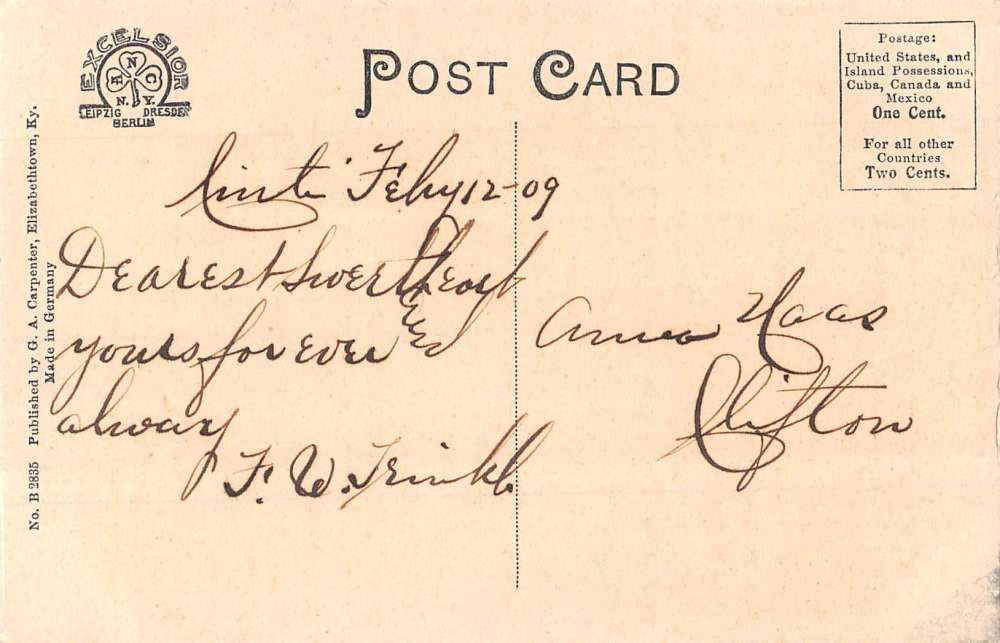 EXCELSIOR
N
H C
N.Y.
LEIPZIG DRESDEN
BERLIN
POST CARD
Postage:
United States, and
Island Possessions,
Cuba, Canada and
Mexico
One Cent.
For all other
Countries
Two Cents.
No. B 2835 Published by G. A. Carpenter, Elizabethtown, Ky.
Made in Germany
Feby 12-09
Dearest Sweetheart
yours forever
alway
F. W. Trinkle
Anna Haas
Clifton